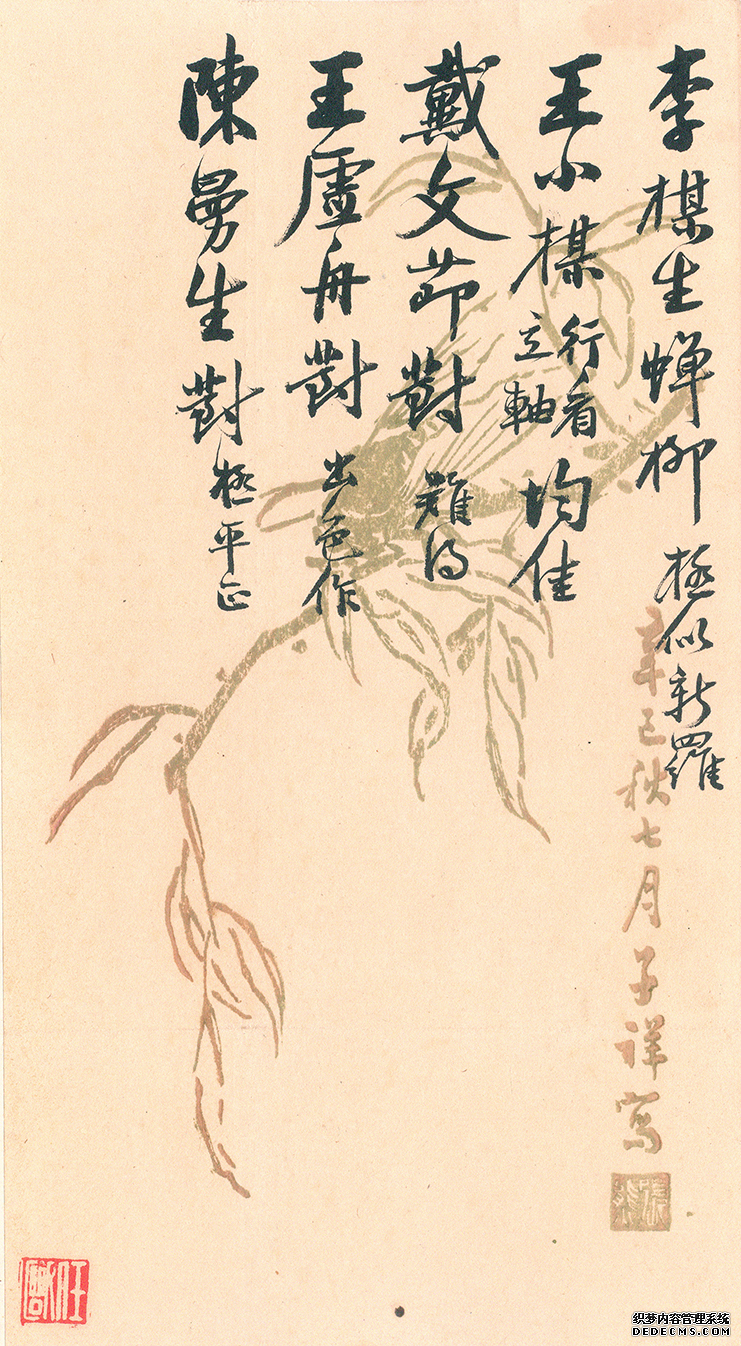 李楳生蟬柳 極似新羅
王小楳 行看立軸 均佳
戴文節對 難得
王虛舟對 出色作
陳曼生對 極平正
辛巳秋七月子祥寫
织梦内容管理系统
DEDECMS.COM